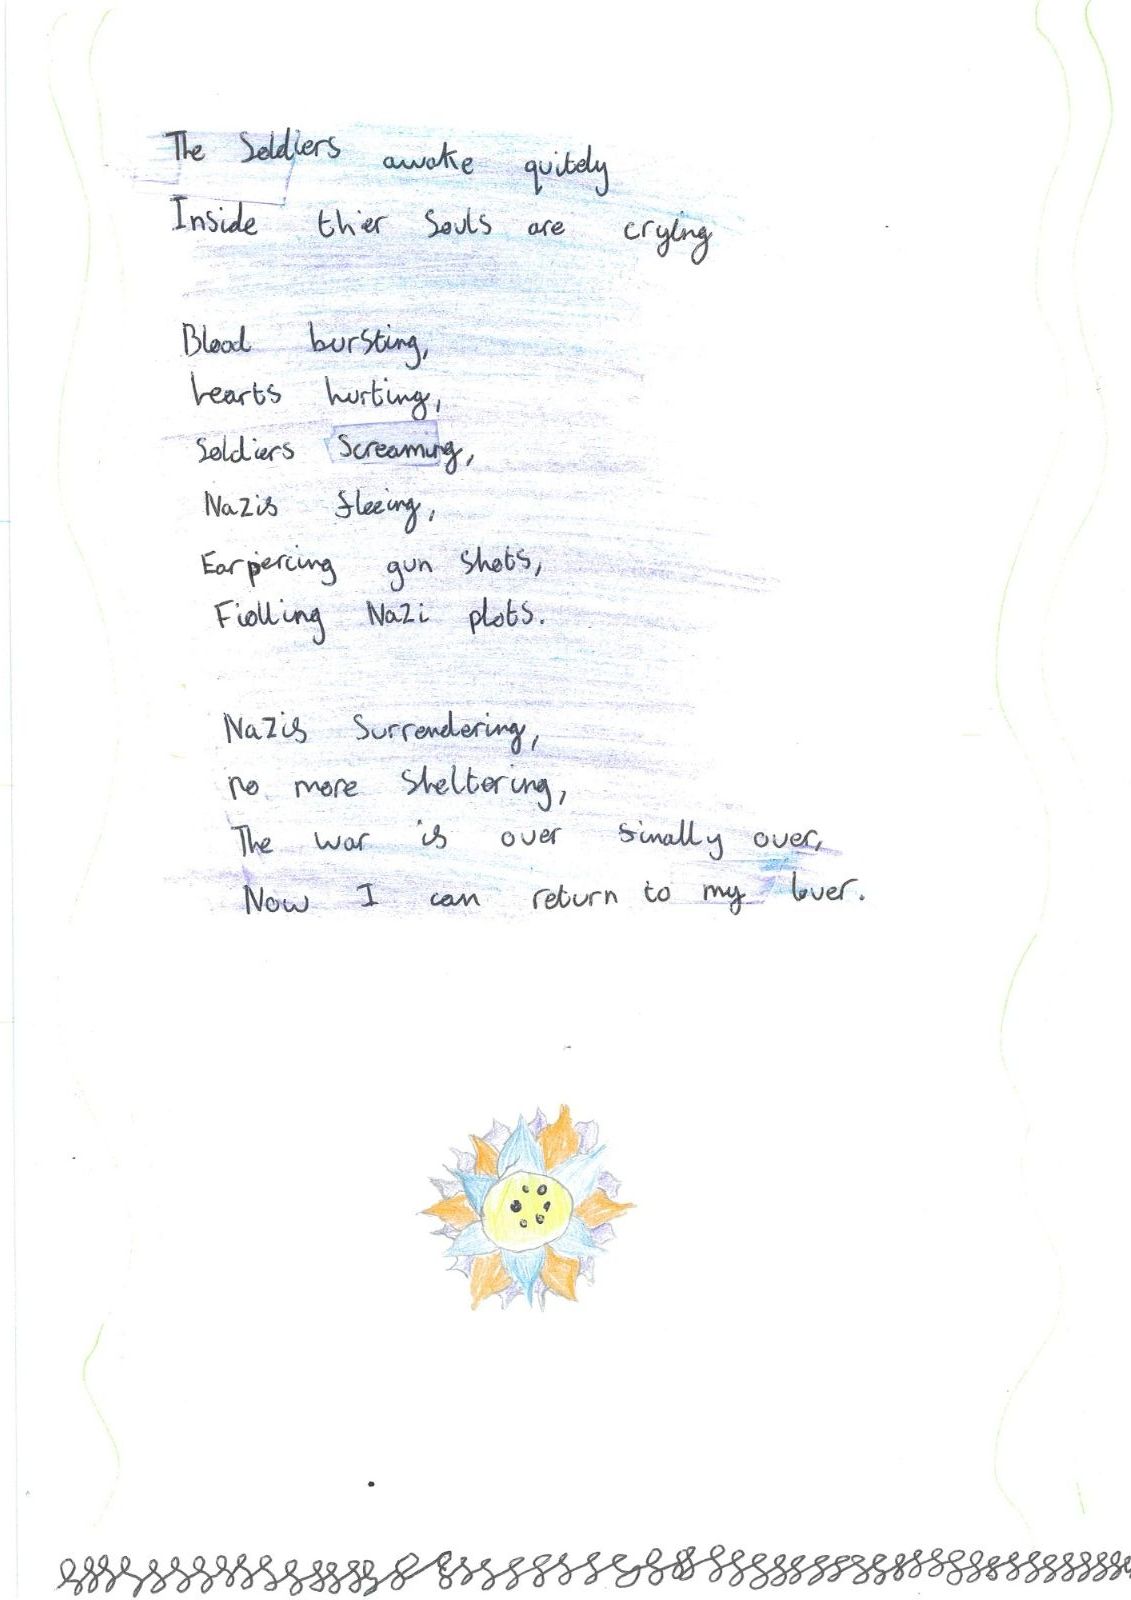 The Soldiers awake quitely
Inside thier Souls are crying
Blood bursting,
hearts hurting,
Soldiers Screaming,
Nazis fleeing,
Earpiercing gun shots,
Nazi plots.
Nazis Surrendering,
no more Sheltering,
The war is over finally over,
Now I can return to my lover.